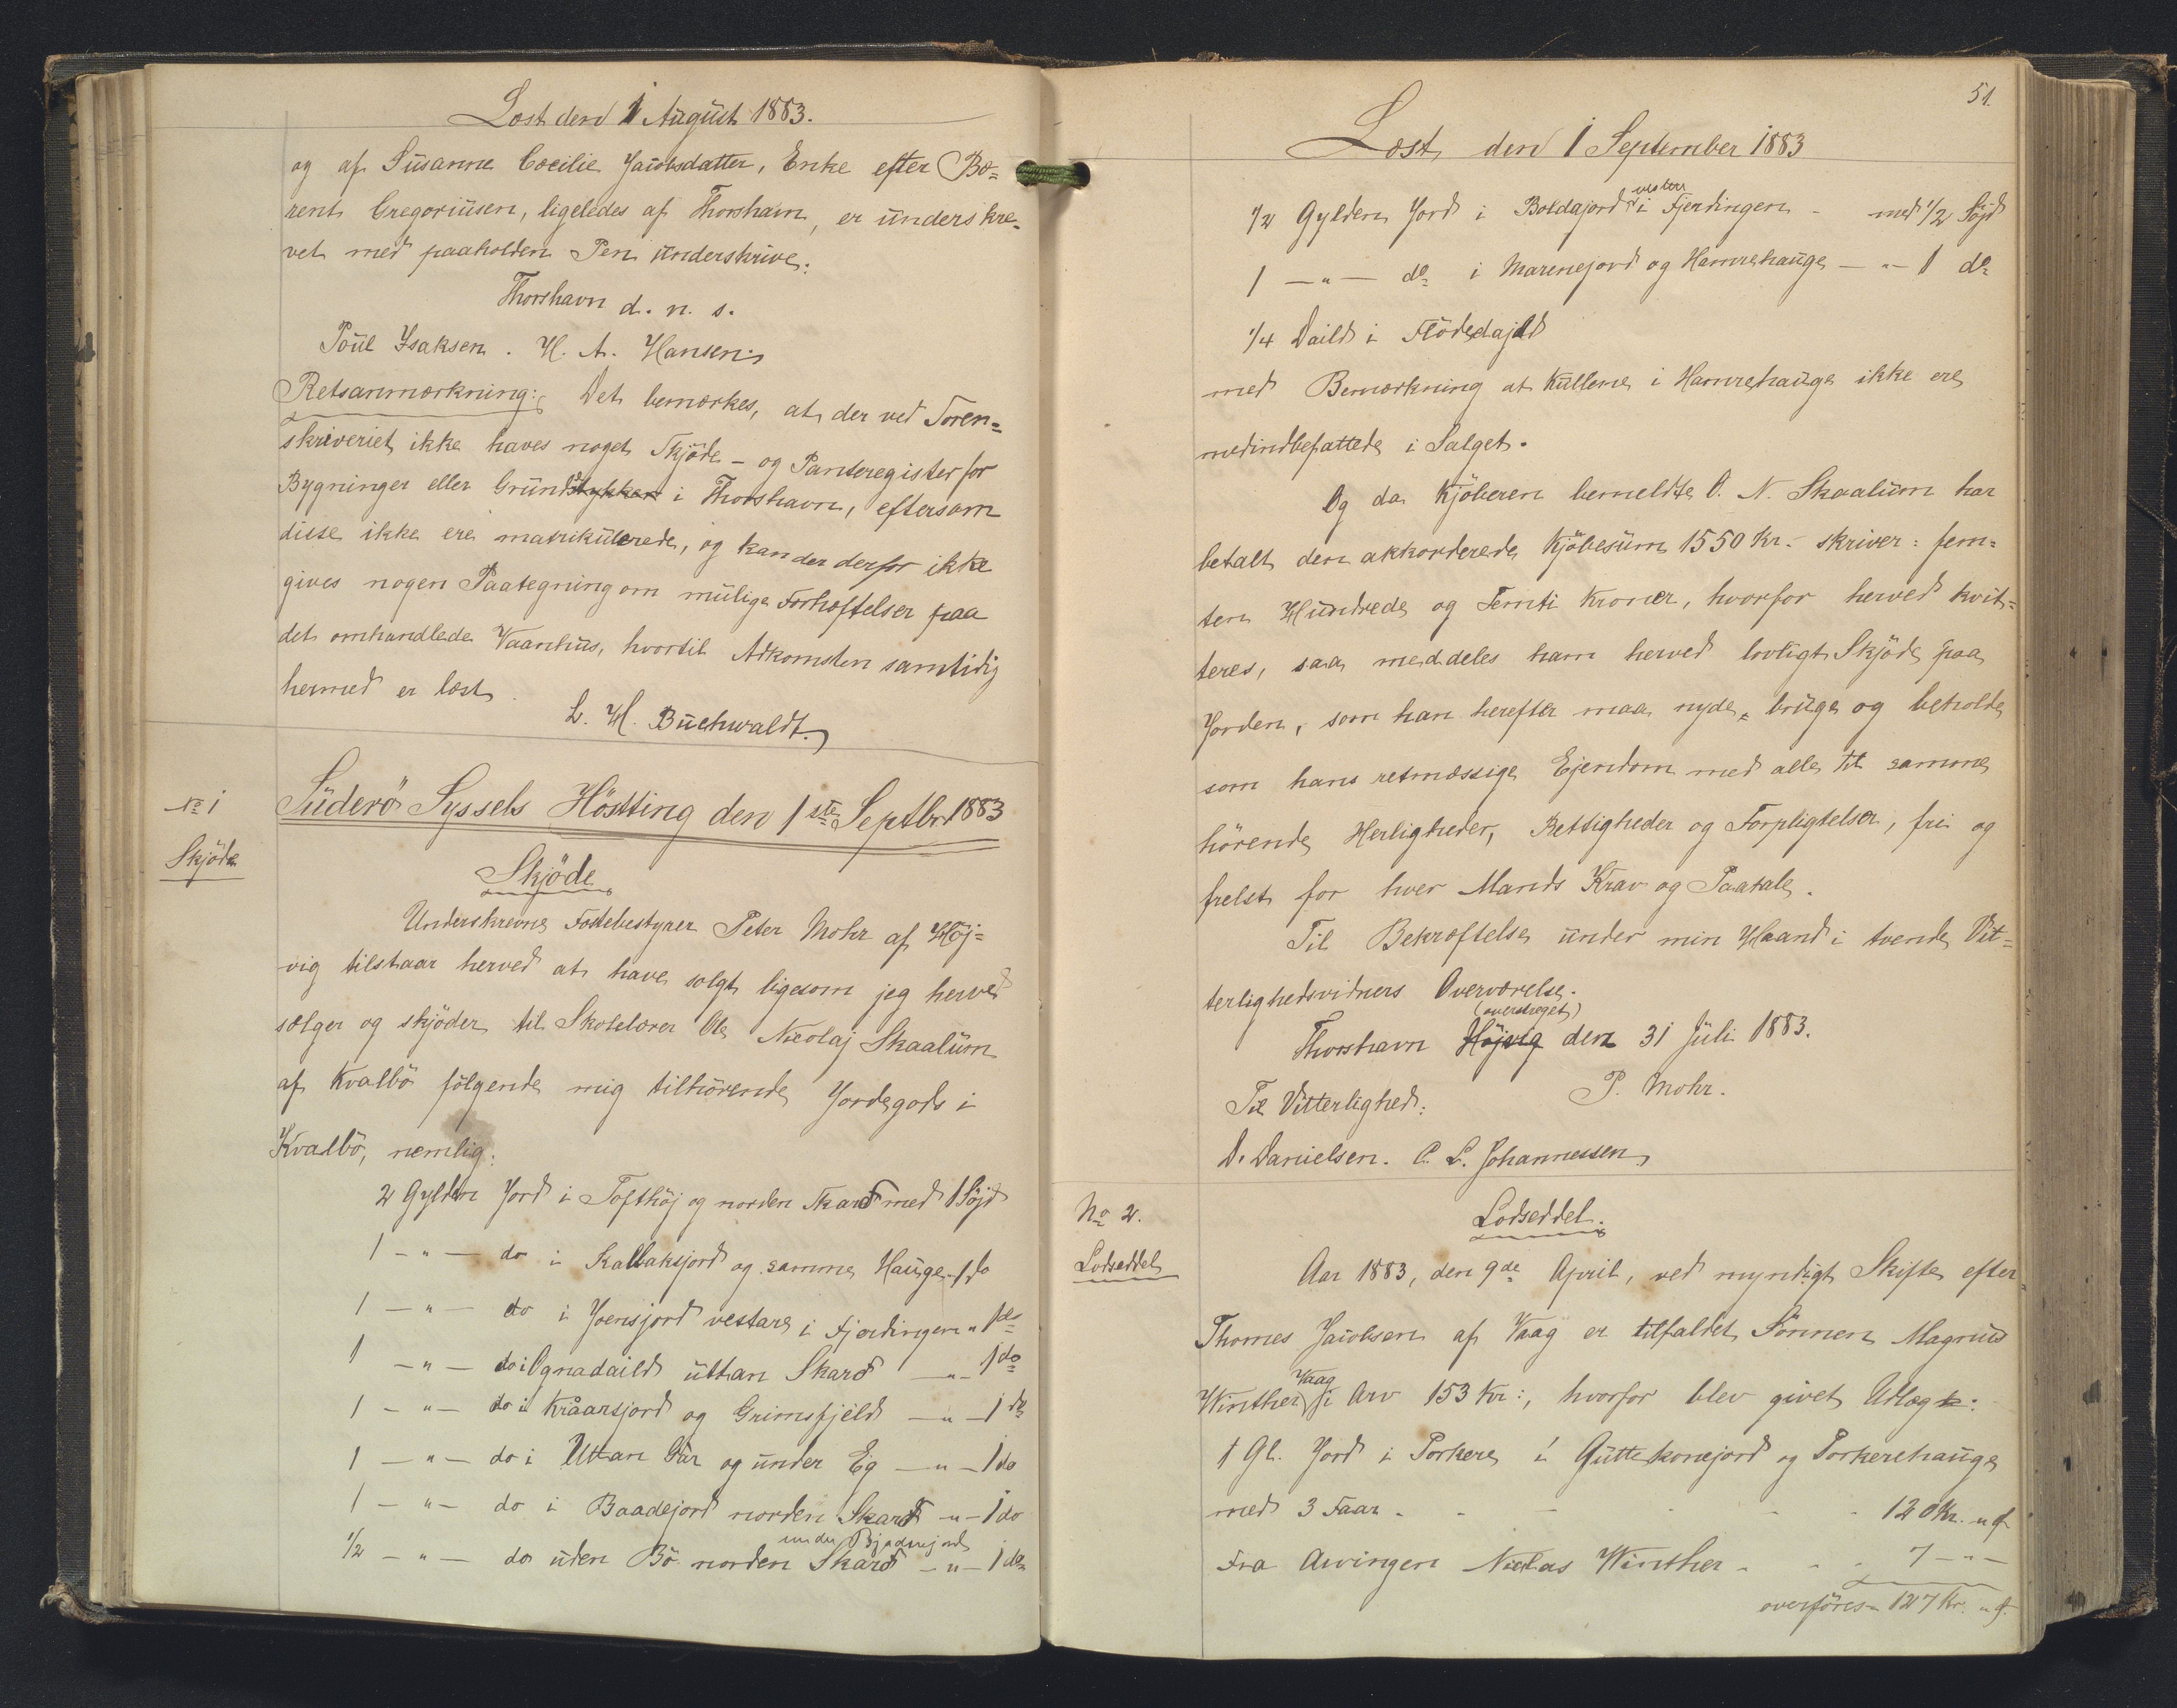 Læst den 1 August 1883.
og af Susanne Cæcilie Jacobsdatter, Enke efter Bæ=
rent Gregoriusen, ligeledes af Thorshavn, er underskre-
vet med paaholden Pen underskrive:
Thorshavn d. n. s.
Poul Isaksen. H. A. Hansen.
Retsanmærkning: Det bemærkes, at der ved Soren=
skriveriet ikke haves noget Skjöde- og Panteregister for
Bygninger eller Grundstykker i Thorshavn, eftersom
disse ikke ere matrikulerede, og kan der derfor ikke
gives nogen Paategning om mulige Forhæftelser paa
det omhandlede Vaanhus, hvortil Adkomsten samtidig
hermed er læst.
L. H. Buchwaldt.
No 1
Skjöde
Suderö Syssels Höstting den 1ste Septbr 1883
Skjöde
Underskrevne Fostebestyrer Peter Mohr af Höj=
vig tilstaar herved at have solgt ligesom jeg herved
sælger og skjöder til Skolelærer Ole Nicolaj Skaalum
af Kvalbö fölgende mig tilhörende Jordegods i
Kvalbö, nemlig:
2 Gylden Jord i Tofthöj og norden Skard med 1 Söjd
1 - " - do i Kalbaksjord og samme Hauge - 1 do
1 - " - do i Joensjord vestare i Fjerdingen " 1 do
1 - " - do i Ognadaild uttan Skard - " - 1 do
1 - " - do i Kraarsjord og Grimsfjeld - " - 1 do
1 - " - do i Uttan Gar og under Eg - " - 1 do
1 - " - do i Baadejord norden Skard - " - 1 do
under Bjadnejord
1/2 - " - do uden Bö norden Skard - " - 1 do
51.
Læst den 1 September 1883
vesten
1/2 Gylden Jord i Boldajord i Fjerdingen - med 1/2 Söjd
1 - " - do i Marenejord og Hamrehauge - " - 1 do
1/4 Daild i Flödedajld
med Bemærkning at Kullene i Hamrehauge ikke ere
medindbefattede i Salget.
Og da Kjöberen bemeldte O. N. Skaalum har
betalt den akkorderede Kjöbesum 1550 Kr. skriver: fem=
ten Hundrede og Femti Kroner, hvorfor herved kvit=
teres, saa meddeles ham herved lovligt Skjöde paa
Jorden, som han herefter maa nyde, bruge og beholde
som hans retmæssige Ejendom med alle til samme
hörende Herligheder, Rettigheder og Forpligtelser, fri og
frelst for hver Mands Krav og Paatale.
Til Bekræftelse under min Haand i tvende Vit=
terlighedsvidners Overværelse.
(overstreget)
Thorshavn Höjvig den 31 Juli 1883.
P. Mohr.
Til Vitterlighed:
D. Danielsen. C. L. Johannessen
No 2.
Lodseddel
Lodseddel.
Aar 1883, den 9de April, ved myndigt Skifte efter
Thomes Jacobsen af Vaag er tilfaldet Sönnen Magnus
Vaag
Winther i Arv 153 Kr:, hvorfor blev givet Udlæg:
1 Gl. Jord i Porkere i Guttekonejord og Porkerehauge
med 3 Faar - - - - - 120 Kr. " ø
Fra Arvingen Niclas Winther - - - 7 - " -
overföres - 127 Kr. " ø.